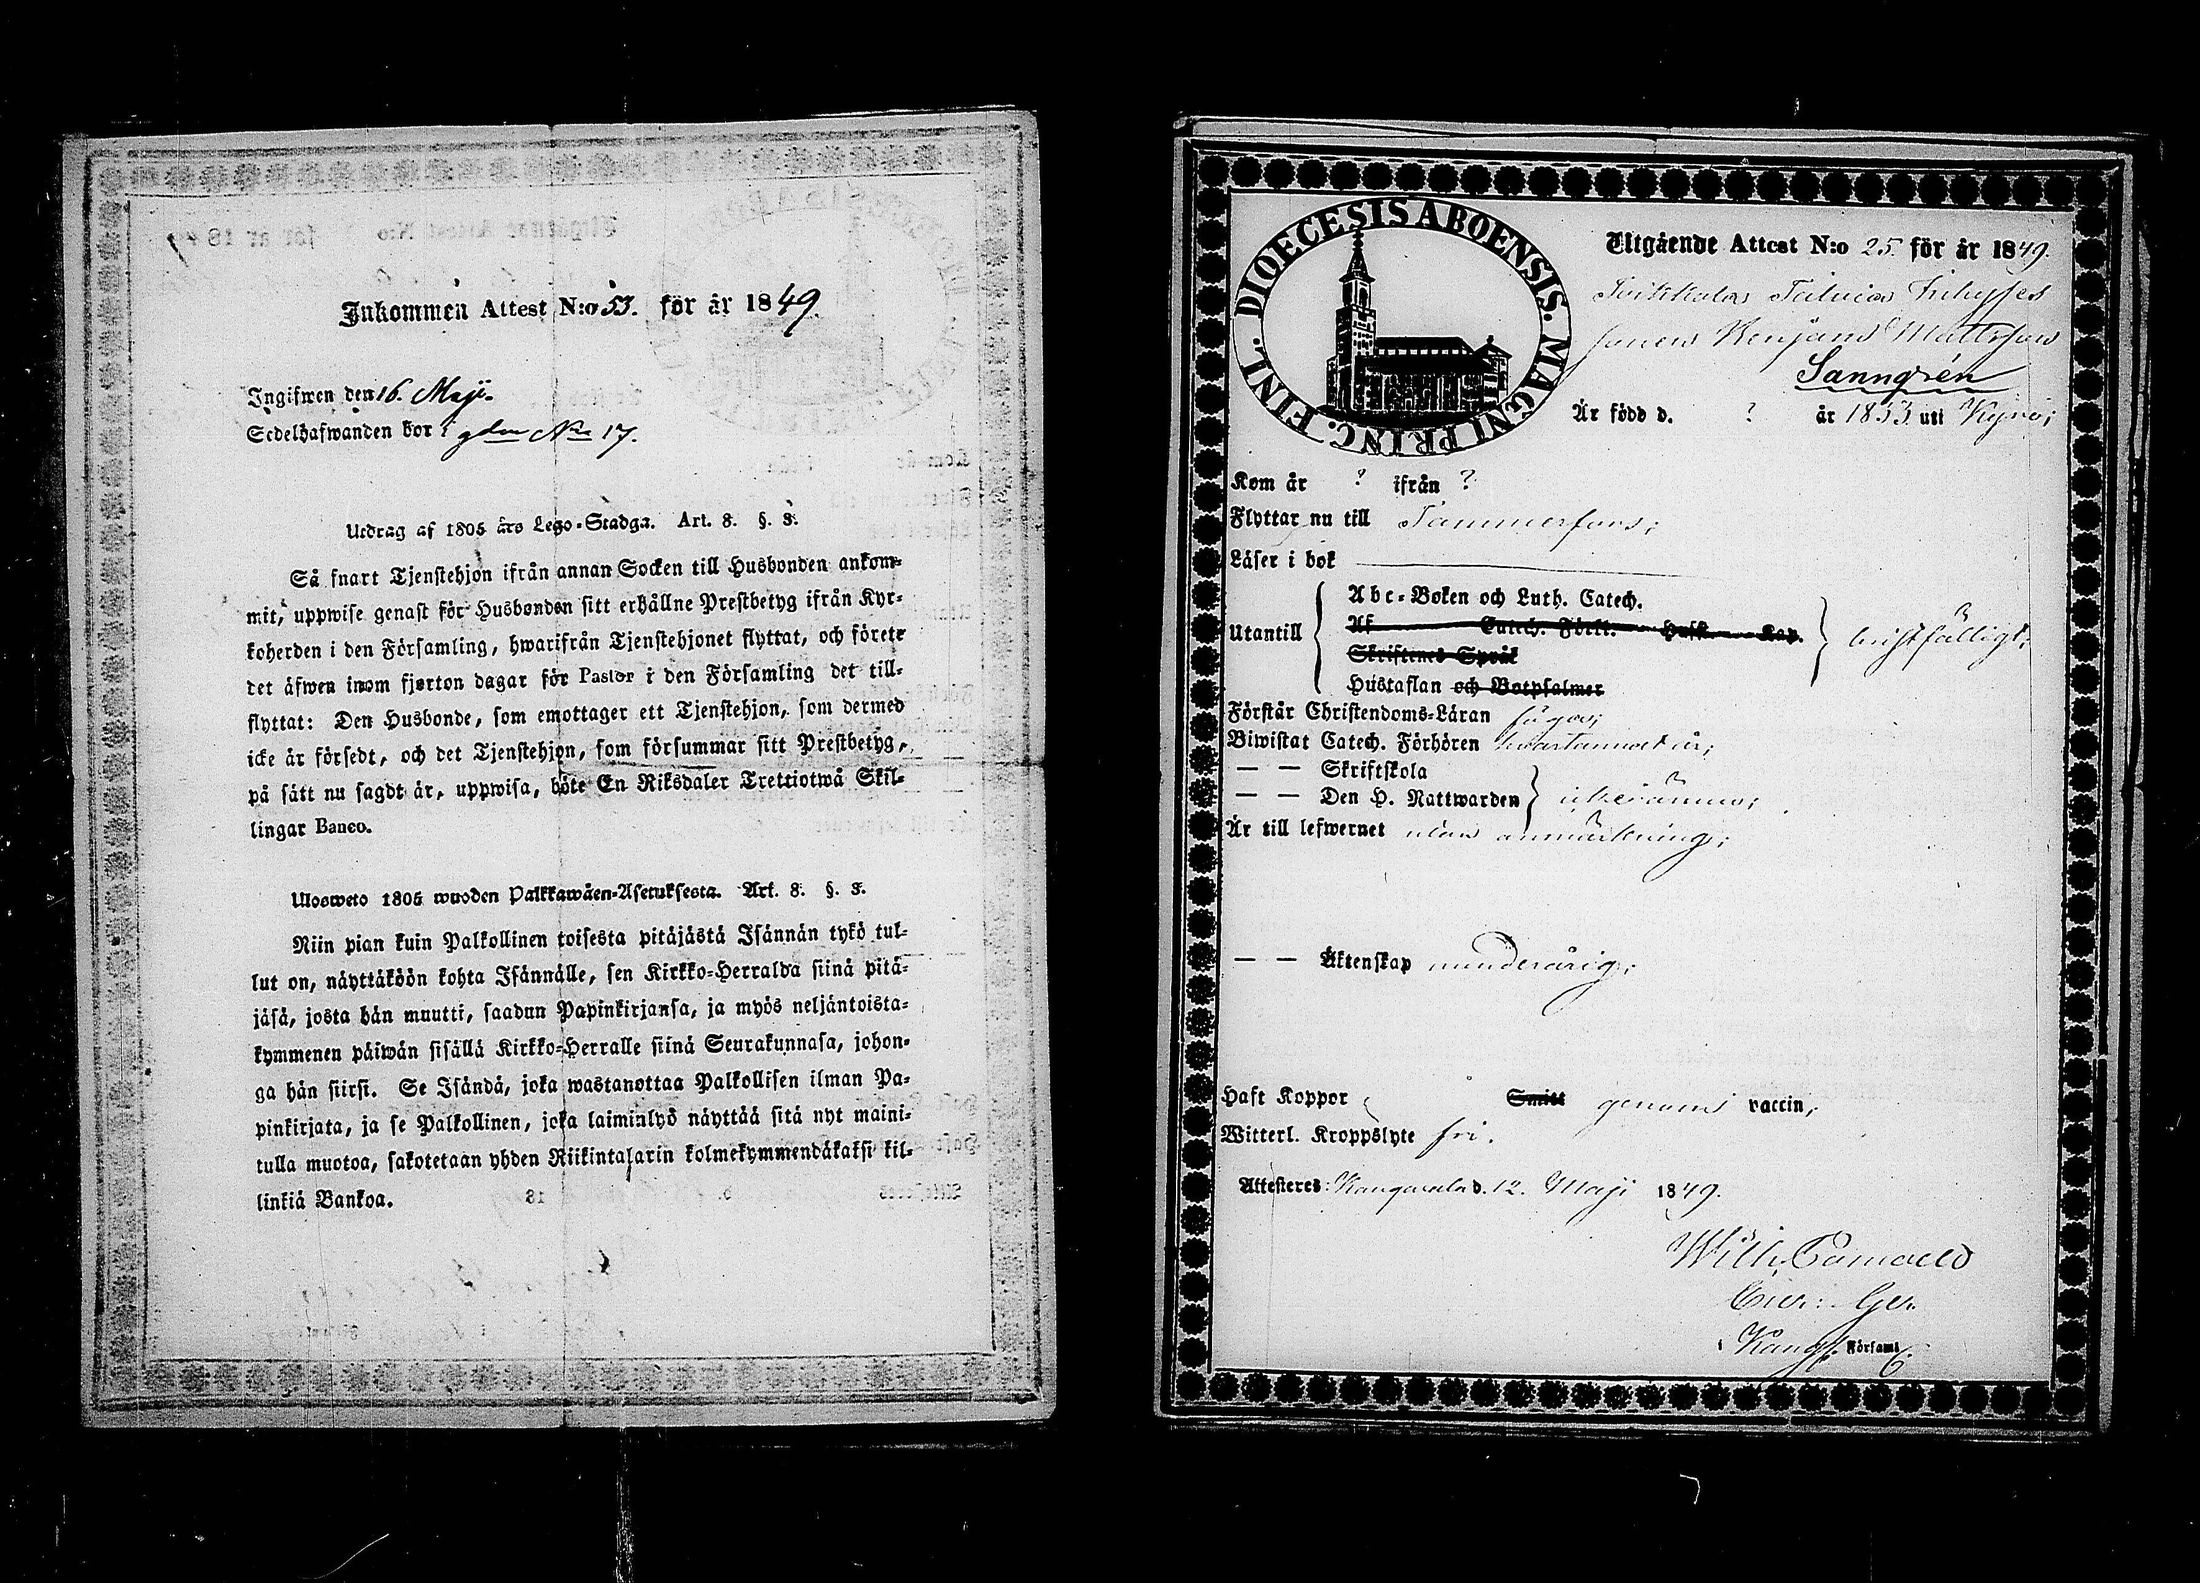 Inkommen Attest N:o 53. för år 1849.
Ingifwen den 16. Maji.
Sedelhafwanden bor i gden No 17.
Utdrag af 1805 års Lego-Stadga. Art. 8. §. 8.
Så snart Tjenstehjon ifrån annan Socken till Husbonden ankom-
mit, uppwise genast för Husbonden sitt erhållne Prestbetyg ifrån Kyr-
koherden i den Församling, hwarifrån Tjenstehjonet flyttat, och förete
det äfwen inom fjorton dagar för Pastor i den Församling det till-
flyttat: Den Husbonde, som emottager ett Tjenstehjon, som dermed
icke är försedt, och det Tjenstehjon, som försummar sitt Prestbetyg,
på sätt nu sagdt är, uppwisa, böte En Riksdaler Trettiotwå Skil-
lingar Banco.
Ulosweto 1805 wuoden Palkkawäen-Asetuksesta. Art. 8. §. 8.
Niin pian kuin Palkollinen toisesta pitäjästä Isännän tykö tul-
lut on, näyttäköön kohta Isännälle, sen Kirkko-Herralda siinä pitä-
jäsä, josta hän muutti, saadun Papinkirjansa, ja myös neljäntoista-
kymmenen päiwän sisällä Kirkko-Herralle siinä Seurakunnasa, johon-
ga hän siirsi. Se Isändä, joka wastanottaa Palkollisen ilman Pa-
pinkirjata, ja se Palkollinen, joka laiminlyö näyttää sitä nyt maini-
tulla muotoa, sakotetaan yhden Riikintalarin kolmekymmendäkaksi kil-
linkiä Bankoa.
DIOECESIS ABOENSIS. MAGNI PRINC. FINL.
Utgående Attest N:o 25. för år 1849.
sonen Benjam Mattsson
Sanngrén
Är född d. ? år 1833 uti Kyro;
Kom år ? ifrån ?
Flyttar nu till Tammerfors;
Läser i bok
Utantill
Abc-Boken och Luth. Catech.
Af Catech. Förkl. Husk. Kap.
Skriftenes Språk
Hustaflan och Botpsalmer
bristfälligt;
Förstår Christendoms-Läran någor;
Biwistat Catech. Förhören
— — Skriftskola
— — Den H. Nattwarden icke ännu;
Är till lefwernet utan anmärkning;
— — Äktenskap minderårig;
Haft Koppor Smitt genom vaccin;
Witterl. Kroppslyte fri.
Attesteres: Kangasala d. 12. Maji 1849.
Wilh.
i Kang. Församl.